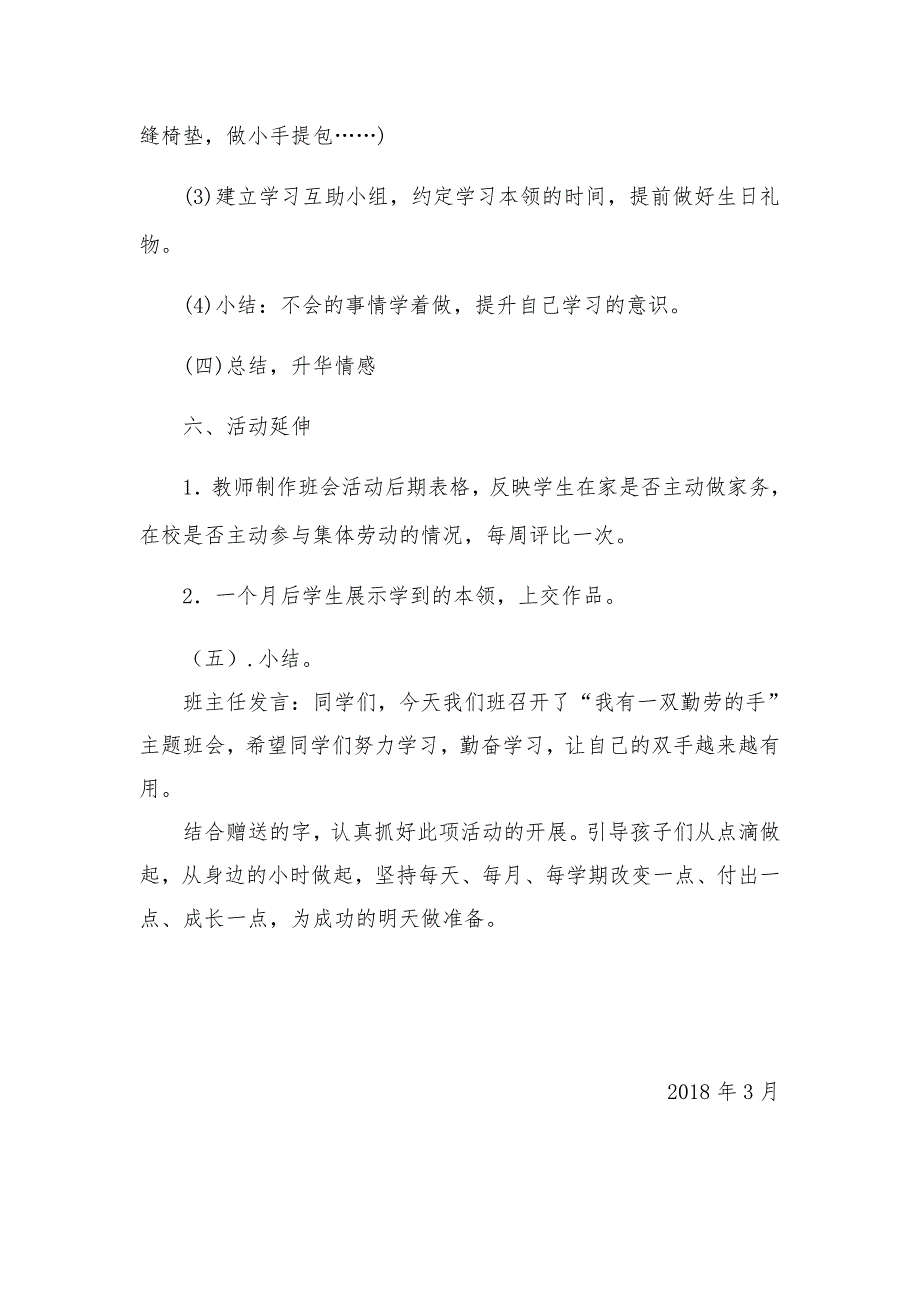 缝椅垫，做小手提包……)
(3)建立学习互助小组，约定学习本领的时间，提前做好生日礼
物。
(4)小结：不会的事情学着做，提升自己学习的意识。
(四)总结，升华情感
六、活动延伸
1．教师制作班会活动后期表格，反映学生在家是否主动做家务，
在校是否主动参与集体劳动的情况，每周评比一次。
2．一个月后学生展示学到的本领，上交作品。
（五）.小结。
班主任发言：同学们，今天我们班召开了“我有一双勤劳的手”
主题班会，希望同学们努力学习，勤奋学习，让自己的双手越来越有
用。
结合赠送的字，认真抓好此项活动的开展。引导孩子们从点滴做
起，从身边的小时做起，坚持每天、每月、每学期改变一点、付出一
点、成长一点，为成功的明天做准备。
2018 年 3 月